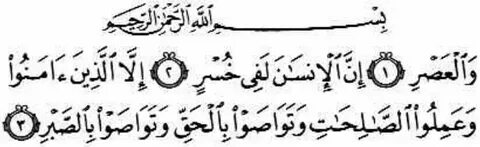 بِسْمِ اللَّهِ الرَّحْمَٰنِ الرَّحِيمِ
وَالْعَصْرِ ۝١ إِنَّ الْإِنسَانَ لَفِي خُسْرٍ ۝٢ إِلَّا الَّذِينَ ءَامَنُوا
وَعَمِلُوا الصَّالِحَاتِ وَتَوَاصَوْا بِالْحَقِّ وَتَوَاصَوْا بِالصَّبْرِ ۝٣